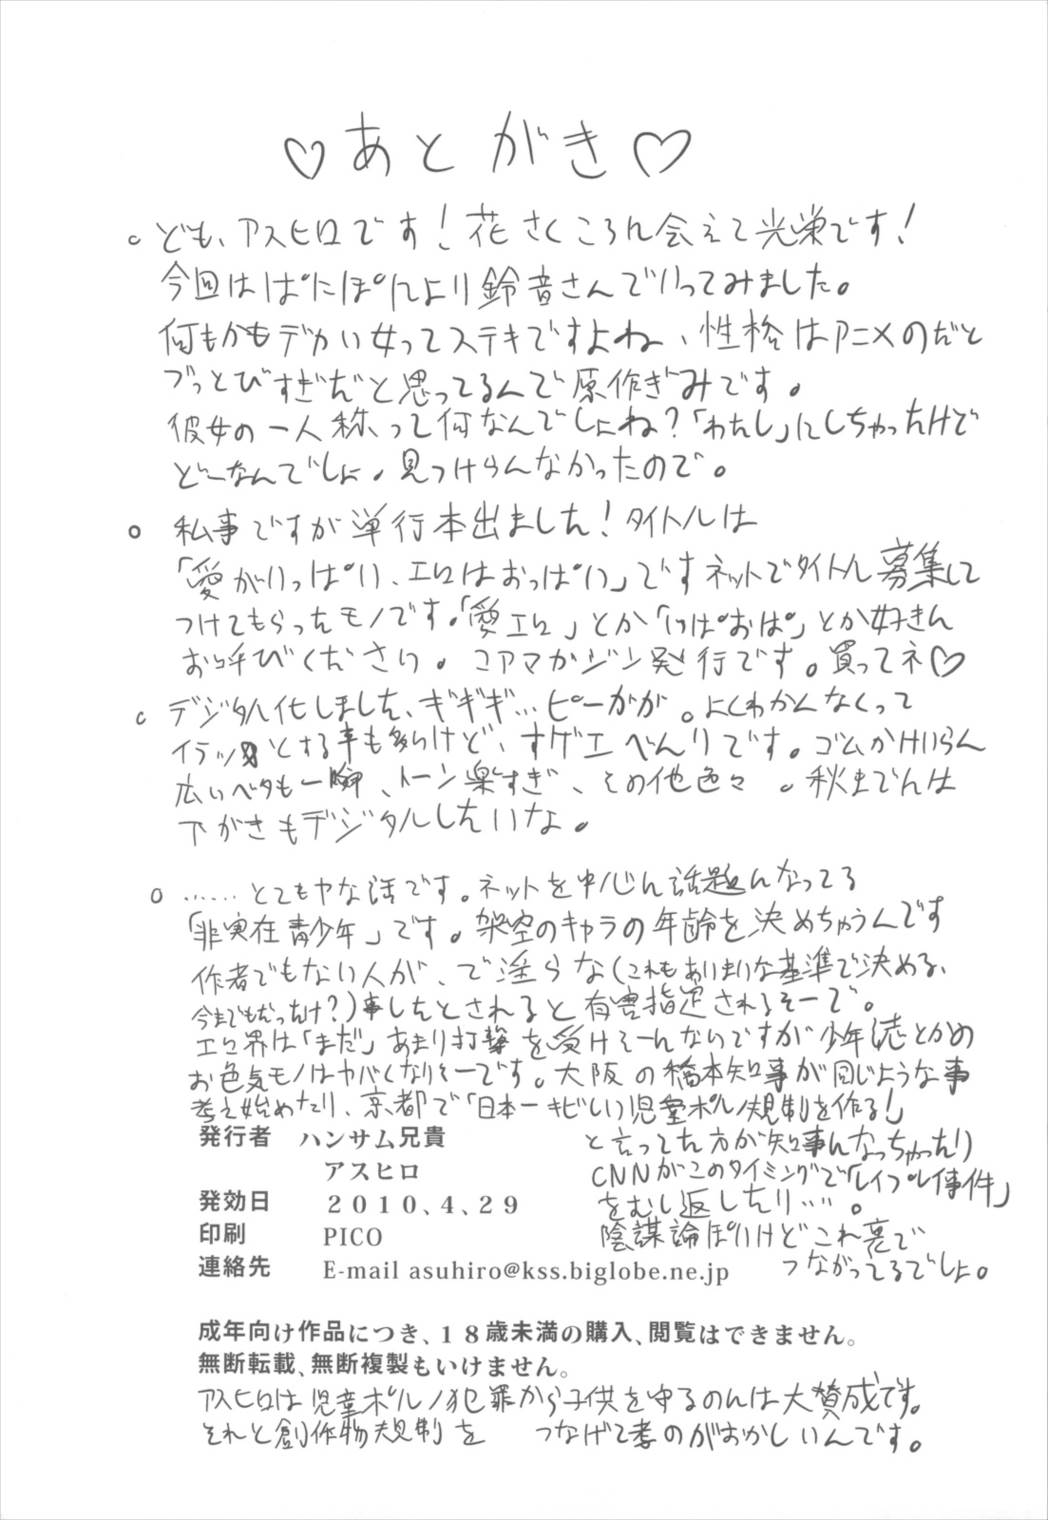 ♡あとがき♡
○ ども、アスヒロです!花さくころに会えて光栄です!
今回はぱにぽにより鈴音さんでいってみました。
何もかもデカい女ってステキですよね、性格はアニメのだと
ブっとびすぎだと思ってるんで原作ぎみです。
彼女の一人称って何なんでしょね?「わたし」にしちゃったけど
どーなんでしょ。見つけらんなかったので。
○ 私事ですが単行本出ました!タイトルは
「愛がいっぱい、エロはおっぱい」ですネットでタイトル募集して
つけてもらったモノです。「愛エロ」とか「いぱおぱ」とか好きに
お呼びください。コアマガジン発行です。買ってネ♡
○ デジタル化しました、ギギギ…ピーガガ。よくわかんなくって
イラッとする事も多いけど、すゲエべんりです。ゴムかけいらん
広いベタも一瞬、トーン楽すぎ、その他色々。秋までには
下がきもデジタルしたいな。
○ ……とてもヤな話です。ネットを中心に話題になってる
「非実在青少年」です。架空のキャラの年齢を決めちゃうんです
作者でもない人が、で淫らな(これもあいまいな基準で決める、
今までもだったけ?)事したとされると有害指定されるそーで。
エロ界は「まだ」あまり打撃を受けそーにないですが少年誌とかの
お色気モノはヤバくなりそーです。大阪の橋本知事が同じような事
考え始めたり、京都で「日本一キビしい児童ポルノ規制を作る!」
と言ってた方が知事になっちゃったり
CNNがこのタイミングで「レイプレイ事件」
をむし返したり……。
陰謀論ぽいけどこれ裏で
つながってるでしょ。
発行者 ハンサム兄貴
アスヒロ
発効日 2010.4.29
印刷 PICO
連絡先 E-mail asuhiro@kss.biglobe.ne.jp
成年向け作品につき、18歳未満の購入、閲覧はできません。
無断転載、無断複製もいけません。
アスヒロは児童ポルノ犯罪から子供を守るのには大賛成です。
それと創作物規制を つなげて考のがおかしいんです。